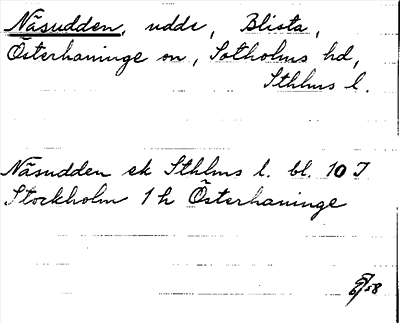 Näsudden, udde, Blista,
Österhaninge sn, Sotholms hd,
Sthlms l.
Näsudden ek Sthlms l. bl. 10 I
Stockholm 1 h Österhaninge
58